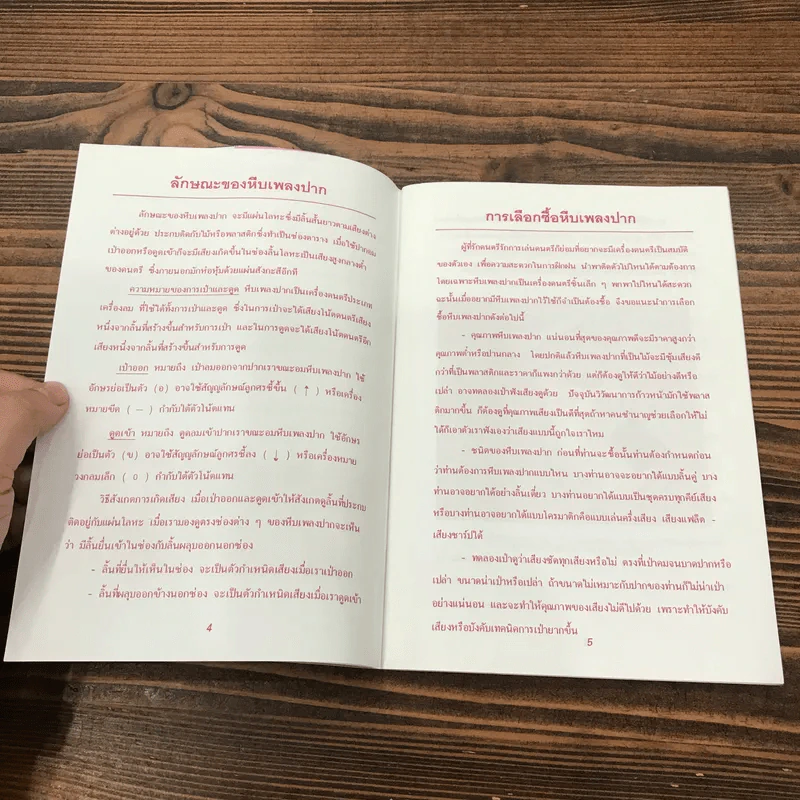 ลักษณะของหีบเพลงปาก
ลักษณะของหีบเพลงปาก จะมีแผ่นโลหะซึ่งมีลิ้นสั้นยาวตามเสียงต่าง
ต่างอยู่ด้วย ประกบติดกับไม้หรือพลาสติกซึ่งทำเป็นช่องตาราง เมื่อใช้ปากผม
เป่าออกหรือดูดเข้าก็จะมีเสียงเกิดขึ้นในช่องลิ้นโลหะเป็นเสียงสูงกลางต่ำ
ของดนตรี ซึ่งภายนอกมักห่อหุ้มด้วยแผ่นสังกะสีอีกที
ความหมายของการเป่าและดูด หีบเพลงปากเป็นเครื่องดนตรีประเภท
เครื่องลม ที่ใช้ได้ทั้งการเป่าและดูด ซึ่งในการเป่าจะได้เสียงโน้ตดนตรีเสียง
หนึ่งจากลิ้นที่สร้างขึ้นสำหรับการเป่า และในการดูดจะได้เสียงโน้ตดนตรีอีก
เสียงหนึ่งจากลิ้นที่สร้างขึ้นสำหรับการดูด
เป่าออก หมายถึง เป่าลมออกจากปากเราขณะอมหีบเพลงปาก ใช้
อักษรย่อเป็นตัว (อ) อาจใช้สัญญลักษณ์ลูกศรชี้ขึ้น ( ↑ ) หรือเครื่อง
หมายขีด ( – ) กำกับใต้ตัวโน้ตแทน
ดูดเข้า หมายถึง ดูดลมเข้าปากเราขณะอมหีบเพลงปาก ใช้อักษร
ย่อเป็นตัว (ข) อาจใช้สัญญลักษณ์ลูกศรชี้ลง ( ↓ ) หรือเครื่องหมาย
วงกลมเล็ก ( o ) กำกับใต้ตัวโน้ตแทน
วิธีสังเกตการเกิดเสียง เมื่อเป่าออกและดูดเข้าให้สังเกตดูลิ้นที่ประกบ
ติดอยู่กับแผ่นโลหะ เมื่อเรามองดูตรงช่องต่าง ๆ ของหีบเพลงปากจะเห็น
ว่า มีลิ้นยื่นเข้าในช่องกับลิ้นผลุบออกนอกช่อง
- ลิ้นที่ยื่นให้เห็นในช่อง จะเป็นตัวกำเหนิดเสียงเมื่อเราเป่าออก
- ลิ้นที่ผลุบออกข้างนอกช่อง จะเป็นตัวกำเหนิดเสียงเมื่อเราดูดเข้า
4
การเลือกซื้อหีบเพลงปาก
ผู้ที่รักดนตรีรักการเล่นดนตรีก็ย่อมที่อยากจะมีเครื่องดนตรีเป็นสมบัติ
ของตัวเอง เพื่อความสะดวกในการฝึกฝน นำพาติดตัวไปไหนได้ตามต้องการ
โดยเฉพาะหีบเพลงปากเป็นเครื่องดนตรีชิ้นเล็ก ๆ พกพาไปไหนได้สะดวก
ฉะนั้นเมื่ออยากมีหีบเพลงปากไว้ใช้ก็จำเป็นต้องซื้อ จึงขอแนะนำการเลือก
ซื้อหีบเพลงปากดังต่อไปนี้
- คุณภาพหีบเพลงปาก แน่นอนที่สุดของคุณภาพดีจะมีราคาสูงกว่า
คุณภาพต่ำหรือปานกลาง โดยปกติแล้วหีบเพลงปากที่เป็นไม้จะมีซุ้มเสียงดี
กว่าที่เป็นพลาสติกและราคาก็แพงกว่าด้วย แต่ก็ต้องดูให้ดีว่าไม้อย่างดีหรือ
เปล่า อาจทดลองเป่าฟังเสียงดูด้วย ปัจจุบันวิวัฒนาการก้าวหน้ามักใช้พลาส
ติกมากขึ้น ก็ต้องดูที่คุณภาพเสียงเป็นดีที่สุดถ้าหาคนชำนาญช่วยเลือกให้ไม่
ได้ก็เอาตัวเราฟังเองว่าเสียงแบบนี้ถูกใจเราไหม
- ชนิดของหีบเพลงปาก ก่อนที่ท่านจะซื้อนั้นท่านต้องกำหนดก่อน
ว่าท่านต้องการหีบเพลงปากแบบไหน บางท่านอาจจะอยากได้แบบลิ้นคู่ บาง
ท่านอาจอยากได้อย่างลิ้นเดี่ยว บางท่านอยากได้แบบเป็นชุดครบทุกคีย์เสียง
หรือบางท่านอาจอยากได้แบบโครมาติกคือแบบเล่นครึ่งเสียง เสียงแฟล็ต -
เสียงชาร์ปได้
- ทดลองเป่าดูว่าเสียงชัดทุกเสียงหรือไม่ ตรงที่เป่าคมจนบาดปากหรือ
เปล่า ขนาดน่าเป่าหรือเปล่า ถ้าขนาดไม่เหมาะกับปากของท่านก็ไม่น่าเป่า
อย่างแน่นอน และจะทำให้คุณภาพของเสียงไม่ดีไปด้วย เพราะทำให้บังคับ
เสียงหรือบังคับเทคนิคการเป่ายากขึ้น
5